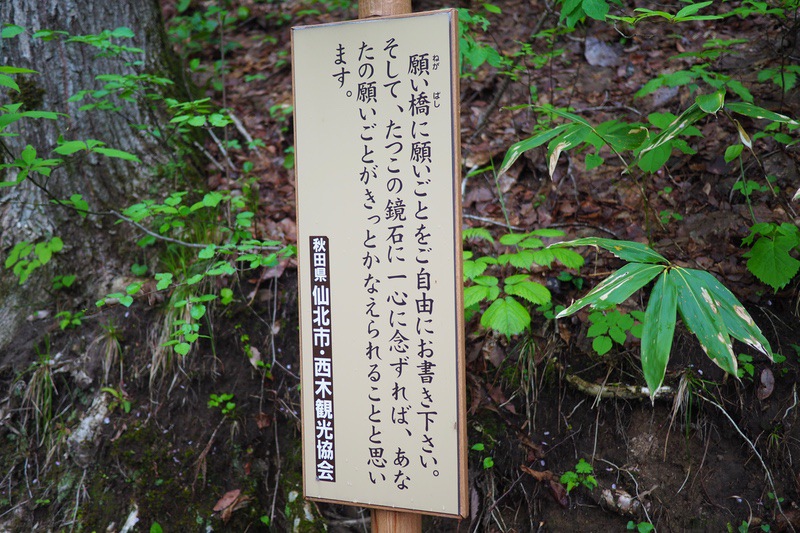 願い橋に願いごとをご自由にお書き下さい。
ねが
はし
そして、たつこの鏡石に一心に念ずれば、あな
たの願いごとがきっとかなえられることと思い
ます。
秋田県仙北市・西木観光協会